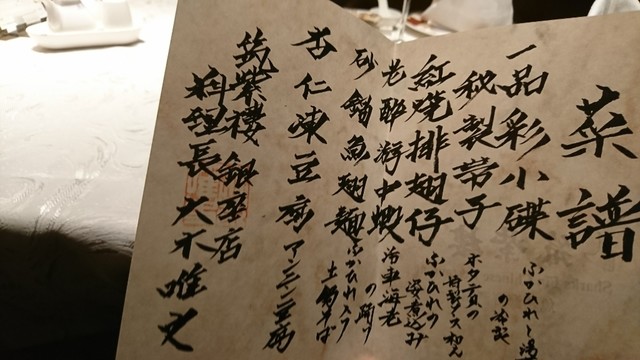 菜譜
一品彩小碟
ふかひれと湯
の
秘製帯子
ホタテ貝の
特製ソース和え
紅焼排翅仔
ふかひれの
姿煮込み
老酔游中蝦
活車海老
の踊り
砂鍋魚翅麺
ふかひれ入り
土鍋そば
杏仁凍豆腐
アンニン豆腐
筑紫樓銀座店
料理長